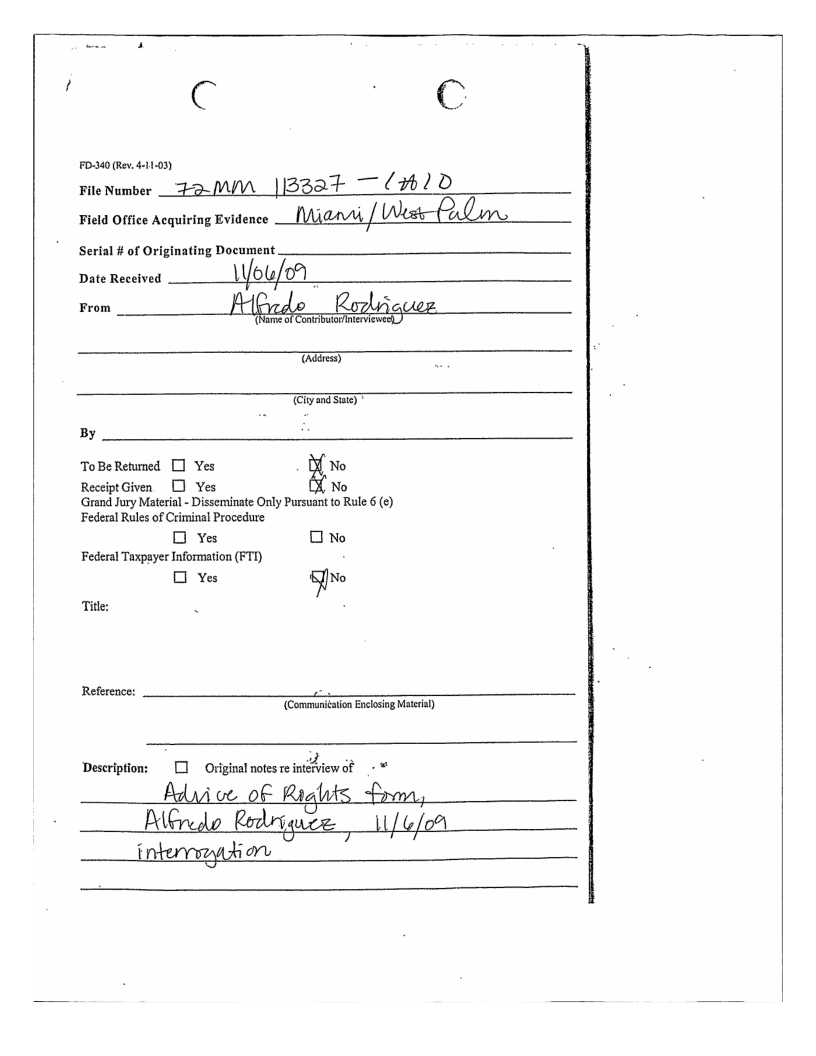 FD-340 (Rev. 4-11-03)
File Number 72 MM 113327 -
Field Office Acquiring Evidence Miami/West Palm
Serial # of Originating Document
Date Received 11/06/09
From Alfredo Rodriguez
(Name of Contributor/Interviewee)
(Address)
(City and State)
By
To Be Returned ☐ Yes ☒ No
Receipt Given ☐ Yes ☒ No
Grand Jury Material - Disseminate Only Pursuant to Rule 6 (e)
Federal Rules of Criminal Procedure
☐ Yes ☐ No
Federal Taxpayer Information (FTI)
☐ Yes ☒ No
Title:
Reference:
(Communication Enclosing Material)
Description: ☐ Original notes re interview of
Advice of Rights form,
Alfredo Rodriguez, 11/6/09
interrogation